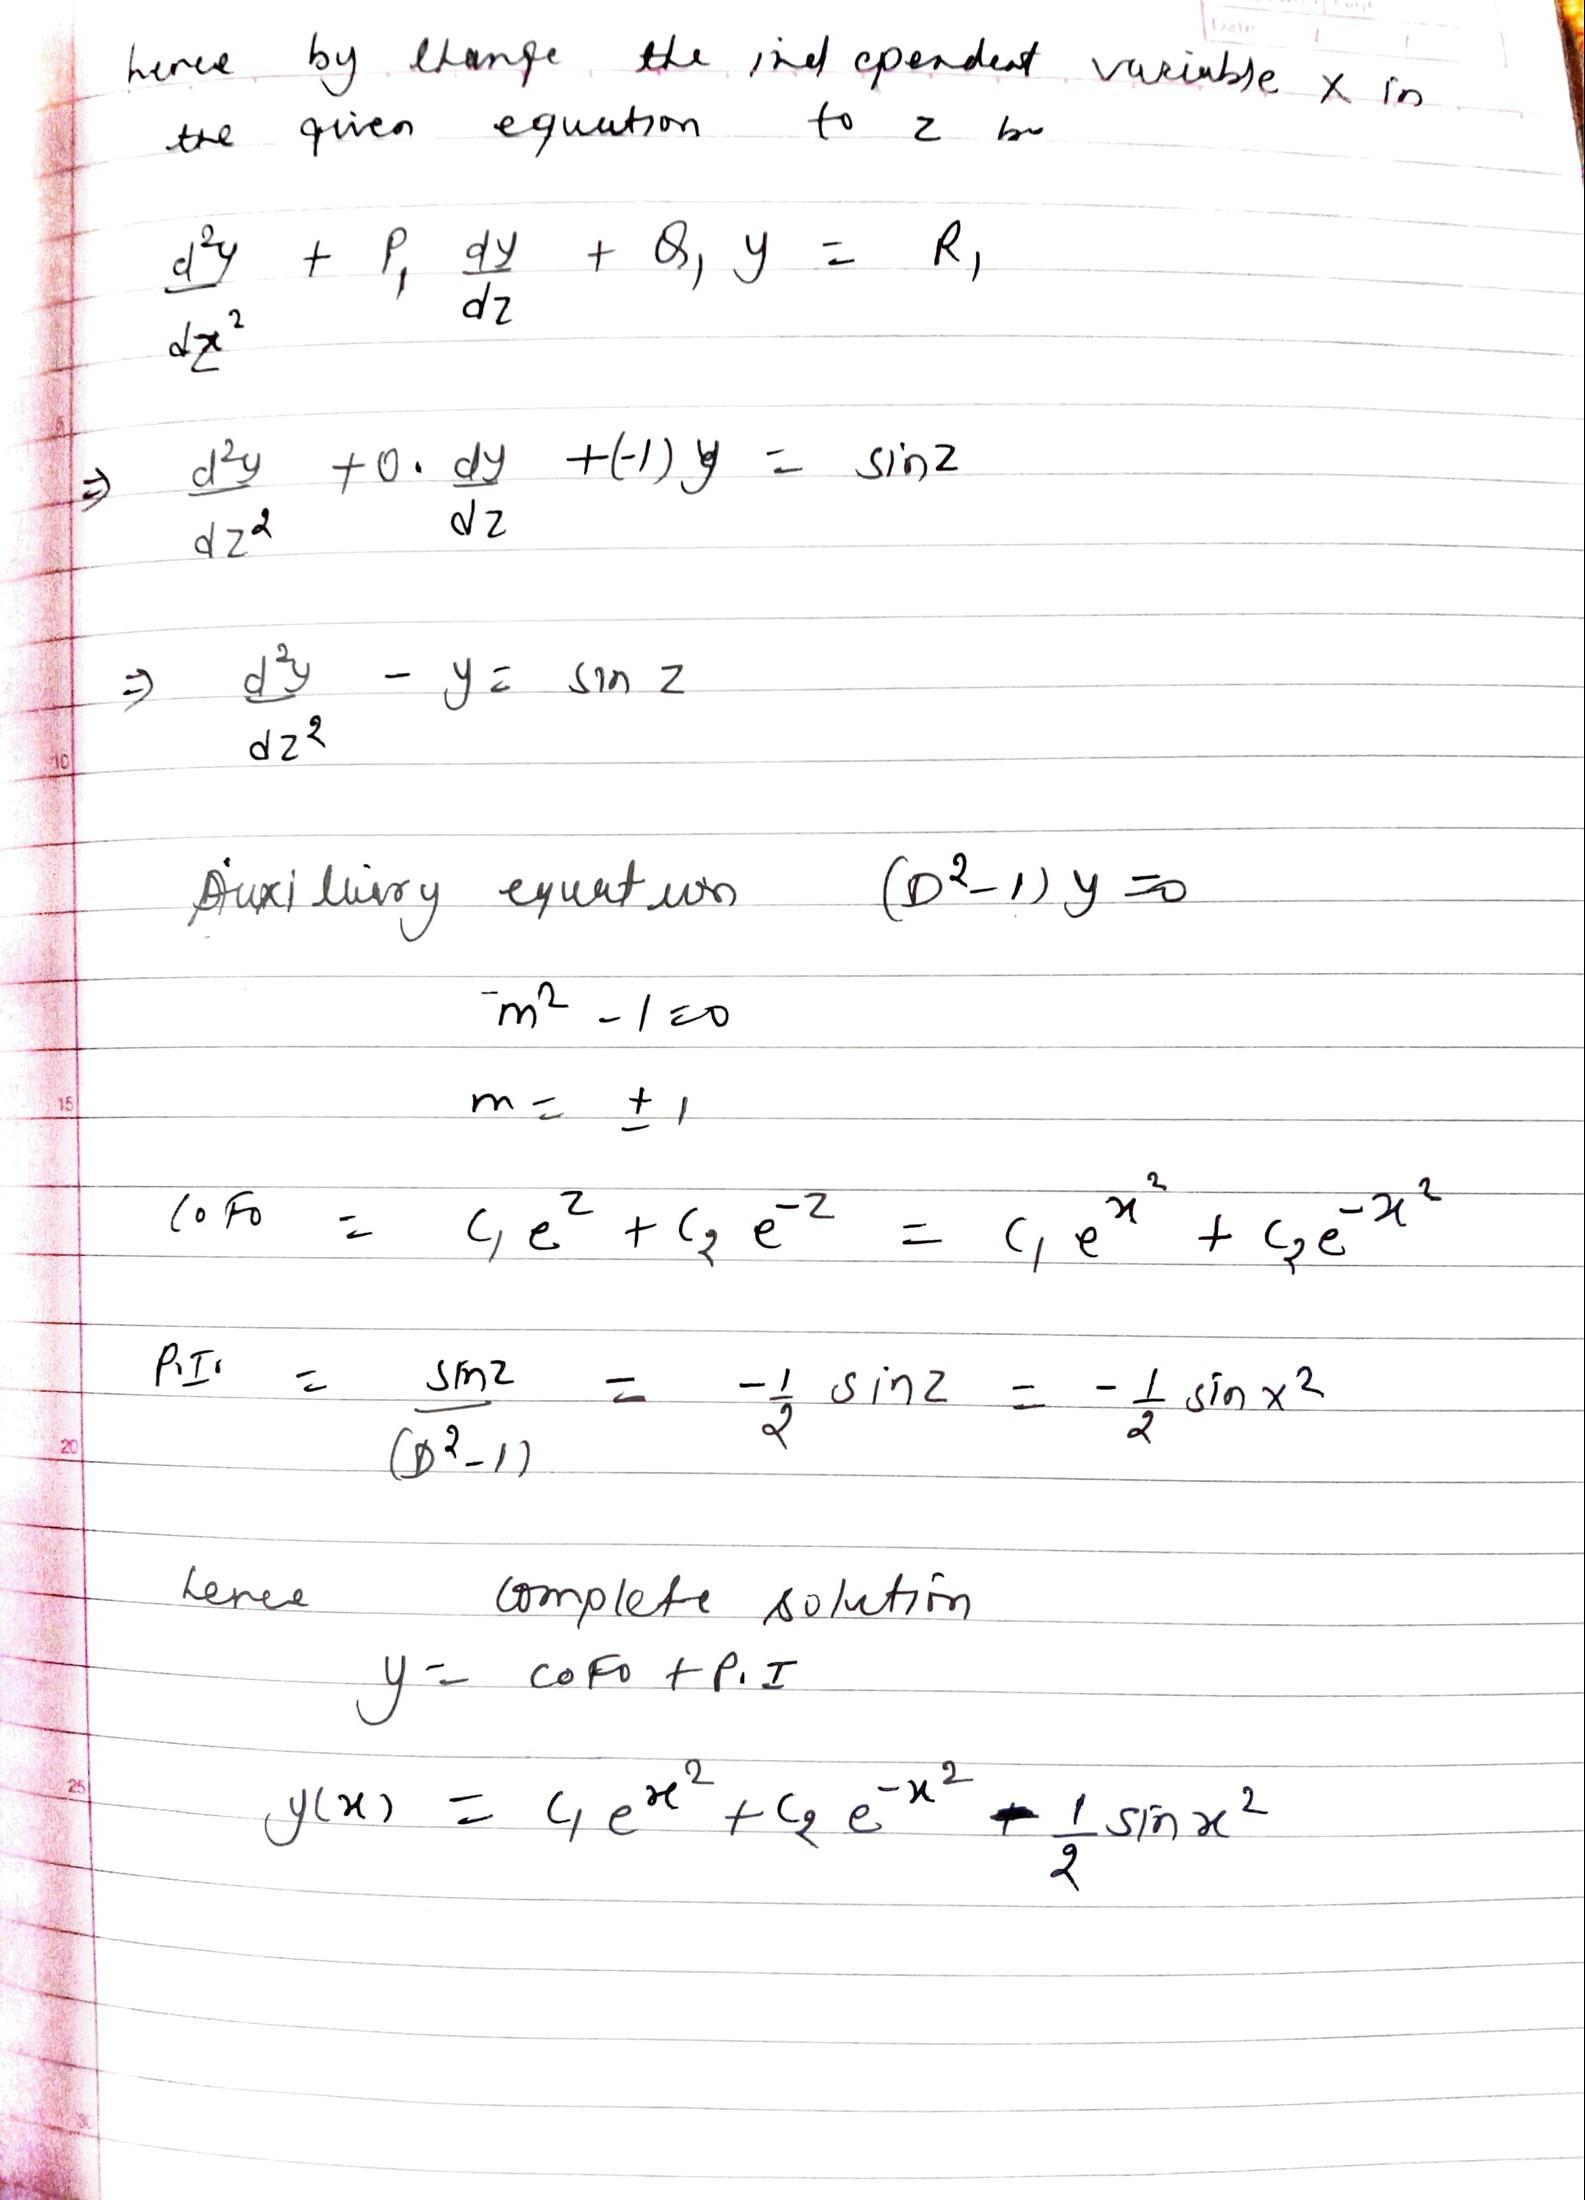 hence by change the independent variable x in
the given equation to z be
d²y/dz² + P₁ dy/dz + Q₁ y = R₁
⇒ d²y/dz² + 0 · dy/dz + (-1) y = sin z
⇒ d²y/dz² - y = sin z
Auxiliary equation (D² - 1) y = 0
m² - 1 = 0
m = ± 1
C.F. = C₁ e^z + C₂ e^-z = C₁ e^x² + C₂ e^-x²
P.I. = sin z/(D² - 1) = - 1/2 sin z = - 1/2 sin x²
hence complete solution
y = C.F. + P.I
y(x) = C₁ e^x² + C₂ e^-x² - 1/2 sin x²
5
10
15
20
25
Date